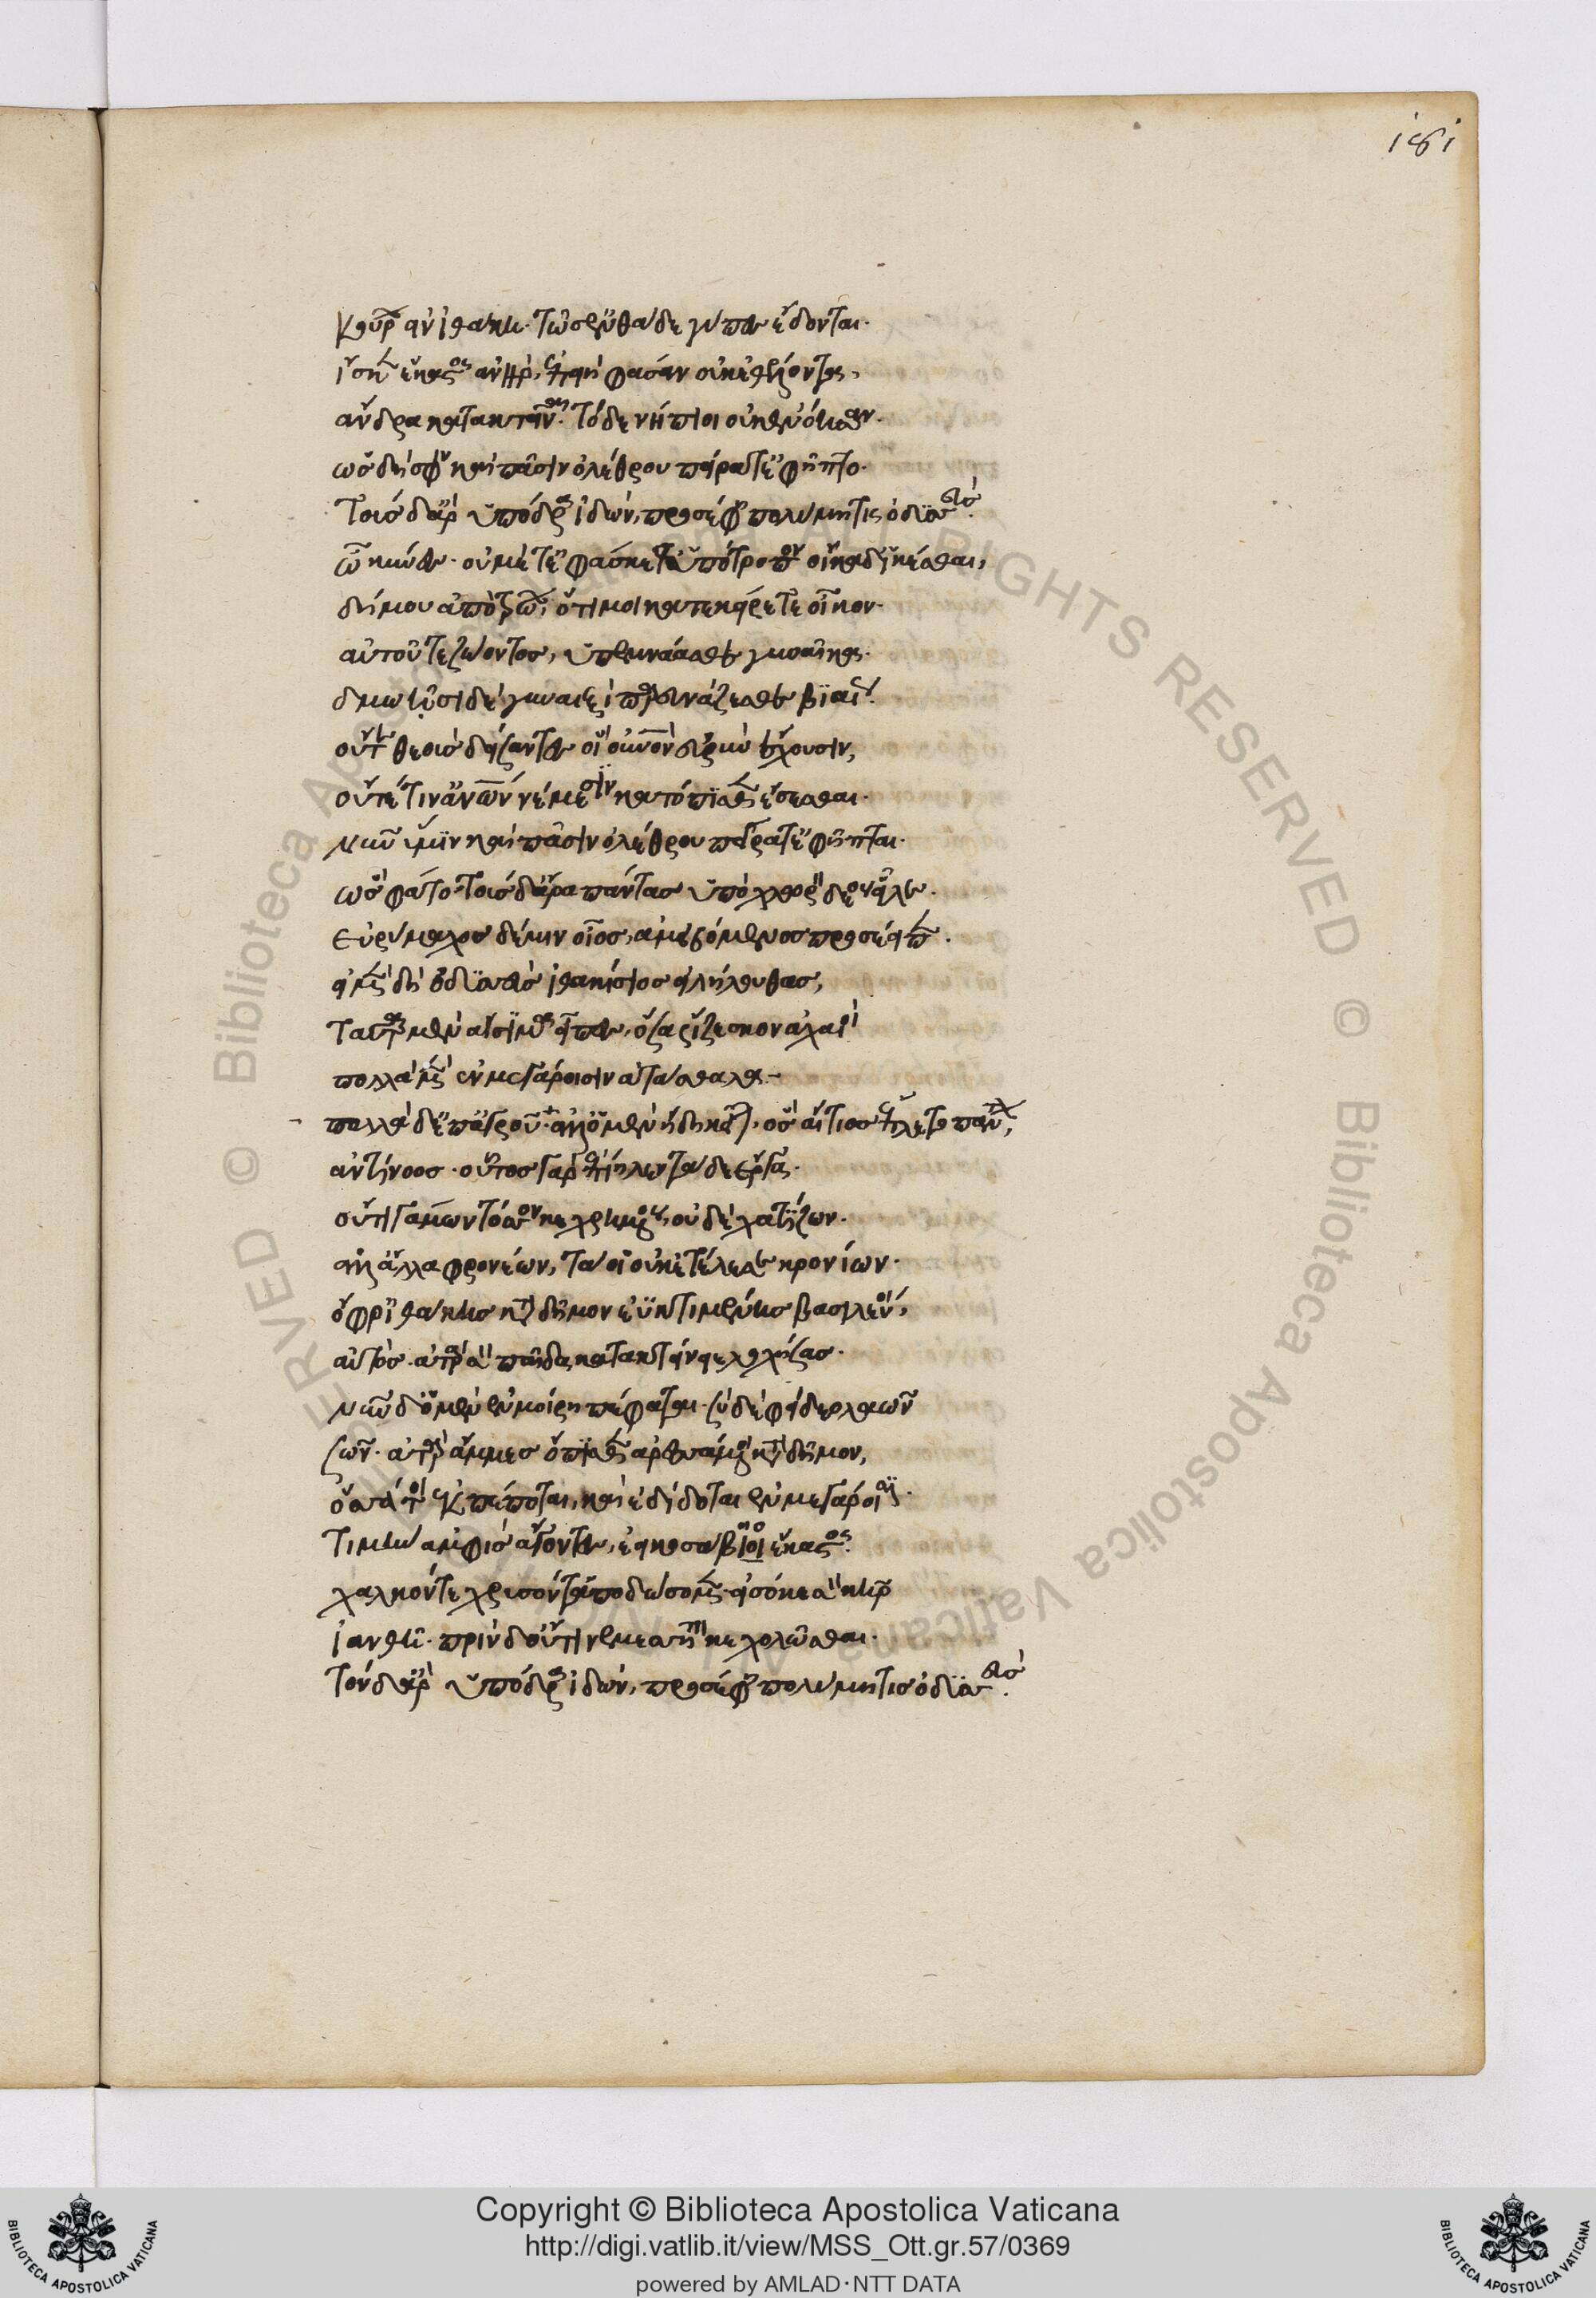 181
κούρων εἰν ἰθάκῃ· τῶ σ' ἐνθάδε γῦπες ἔδονται·
ἴσκεν ἕκαστος ἀνήρ, ἐπειὴ φάσαν οὐκ ἐθέλοντα,
ἄνδρα κατακτεῖναι· τὸ δὲ νήπιοι οὐκ ἐνόησαν·
ὡς δή σφιν καὶ πᾶσιν ὀλέθρου πείρατ' ἐφῆπτο·
τοὺς δ' ἄρ' ὑπόδρα ἰδὼν, προσέφη πολύμητις ὀδυσσεύς·
ὦ κύνες· οὔ μ' ἔτ' ἐφάσκεθ' ὑπότροπον οἴκαδ' ἱκέσθαι,
δήμου ἄπο τρώων, ὅτι μοι κατεκείρετε οἶκον·
αὐτοῦ τε ζώοντος, ὑπεμνάασθε γυναῖκα·
δμωῇσι δὲ γυναιξὶ παρευνάζεσθε βιαίως·
οὔτε θεοὺς δείσαντες οἳ οὐρανὸν εὐρὺν ἔχουσιν,
οὔτέ τιν' ἀνθρώπων νέμεσιν κατόπισθεν ἔσεσθαι·
νῦν ὑμῖν καὶ πᾶσιν ὀλέθρου πείρατ' ἐφῆπται·
ὣς φάτο· τοὺς δ' ἄρα πάντας ὑπὸ χλωρὸν δέος εἷλεν·
εὐρύμαχος δέ μιν οἶος, ἀμειβόμενος προσέειπεν·
εἰ μὲν δὴ ὀδυσσεὺς ἰθακήσιος εἰλήλουθας,
ταῦτα μὲν αἴσιμα εἶπες, ὅσα ῥέζεσκον ἀχαιοὶ
πολλὰ μὲν ἐν μεγάροισιν ἀτάσθαλα·
πολλὰ δ' ἐπ' ἀγροῦ· ἀλλ' ὁ μὲν ἤδη κεῖται, ὃς αἴτιος ἔπλετο πάντων,
ἀντίνοος· οὗτος γὰρ ἐπίηλεν τάδε ἔργα·
οὔτι γάμων τόσσον κεχρημένος, οὐδὲ χατίζων·
ἀλλ' ἄλλα φρονέων, τά οἱ οὐκ ἐτέλεσσε κρονίων·
ὄφρ' ἰθάκης κατὰ δῆμον ἐϋκτιμένης βασιλεύοι,
αὐτός· ἀτὰρ σὸν παῖδα κατακτείνειε λοχήσας·
νῦν δ' ὁ μὲν ἐν μοίρῃ πέφαται· σὺ δὲ φείδεο λαῶν
σῶν· ἀτὰρ ἄμμες ὄπισθεν ἀρεσσάμενοι κατὰ δῆμον,
ὅσσά τοι ἐκπέποται, καὶ ἐδήδοται ἐν μεγάροισι·
τιμὴν ἀμφὶς ἄγοντες, ἐεικοσάβοιον ἕκαστος·
χαλκόν τε χρυσόν τ' ἀποδώσομεν· εἰσόκε σὸν κῆρ
ἰανθῇ· πρὶν δ' οὔτι νεμεσσητὸν κεχολῶσθαι·
τὸν δ' ἄρ' ὑπόδρα ἰδὼν, προσέφη πολύμητις ὀδυσσεύς·
Copyright © Biblioteca Apostolica Vaticana
http://digi.vatlib.it/view/MSS_Ott.gr.57/0369
powered by AMLAD·NTT DATA